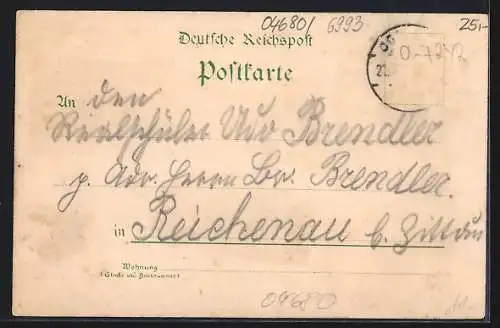 04680/ 6993
25,-
Deutsche Reichspost
Postkarte
An den
Realschüler Udo Brendler
p. Adr. Herrn Br. Brendler.
in Reichenau b. Zittau
Wohnung
(Straße und Hausnummer)
04680